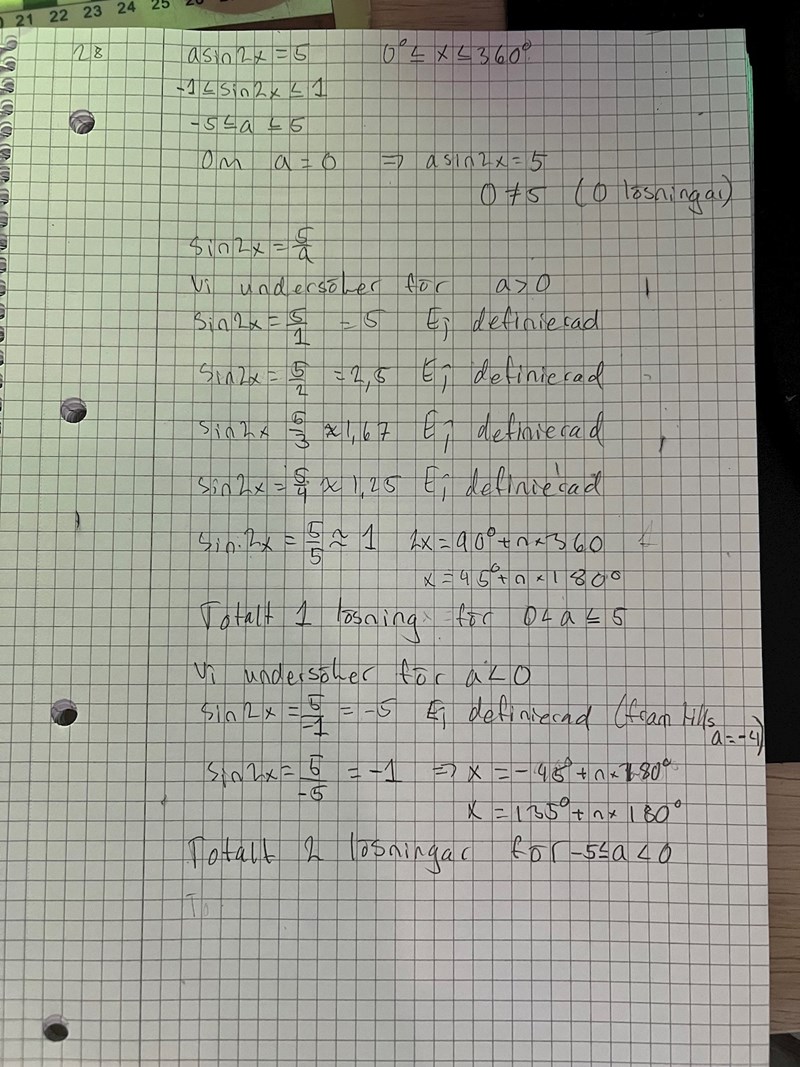 21 22 23 24 25
28 asin2x = 5 0° ≤ x ≤ 360°
-1 ≤ sin2x ≤ 1
-5 ≤ a ≤ 5
Om a = 0 ⇒ asin2x = 5
0 ≠ 5 (0 lösningar)
sin2x = 5/a
Vi undersöker för a > 0
sin2x = 5/1 = 5 Ej definierad
sin2x = 5/2 = 2,5 Ej definierad
sin2x 5/3 ≈ 1,67 Ej definierad
sin2x = 5/4 ≈ 1,25 Ej definierad
sin2x = 5/5 ≈ 1 2x = 90° + n×360
x = 45° + n×180°
Totalt 1 lösning för 0 < a ≤ 5
Vi undersöker för a < 0
sin2x = 5/-1 = -5 Ej definierad (fram tills
a = -4)
sin2x = 5/-5 = -1 ⇒ x = -45° + n×180°
x = 135° + n×180°
Totalt 2 lösningar för -5 ≤ a < 0
To